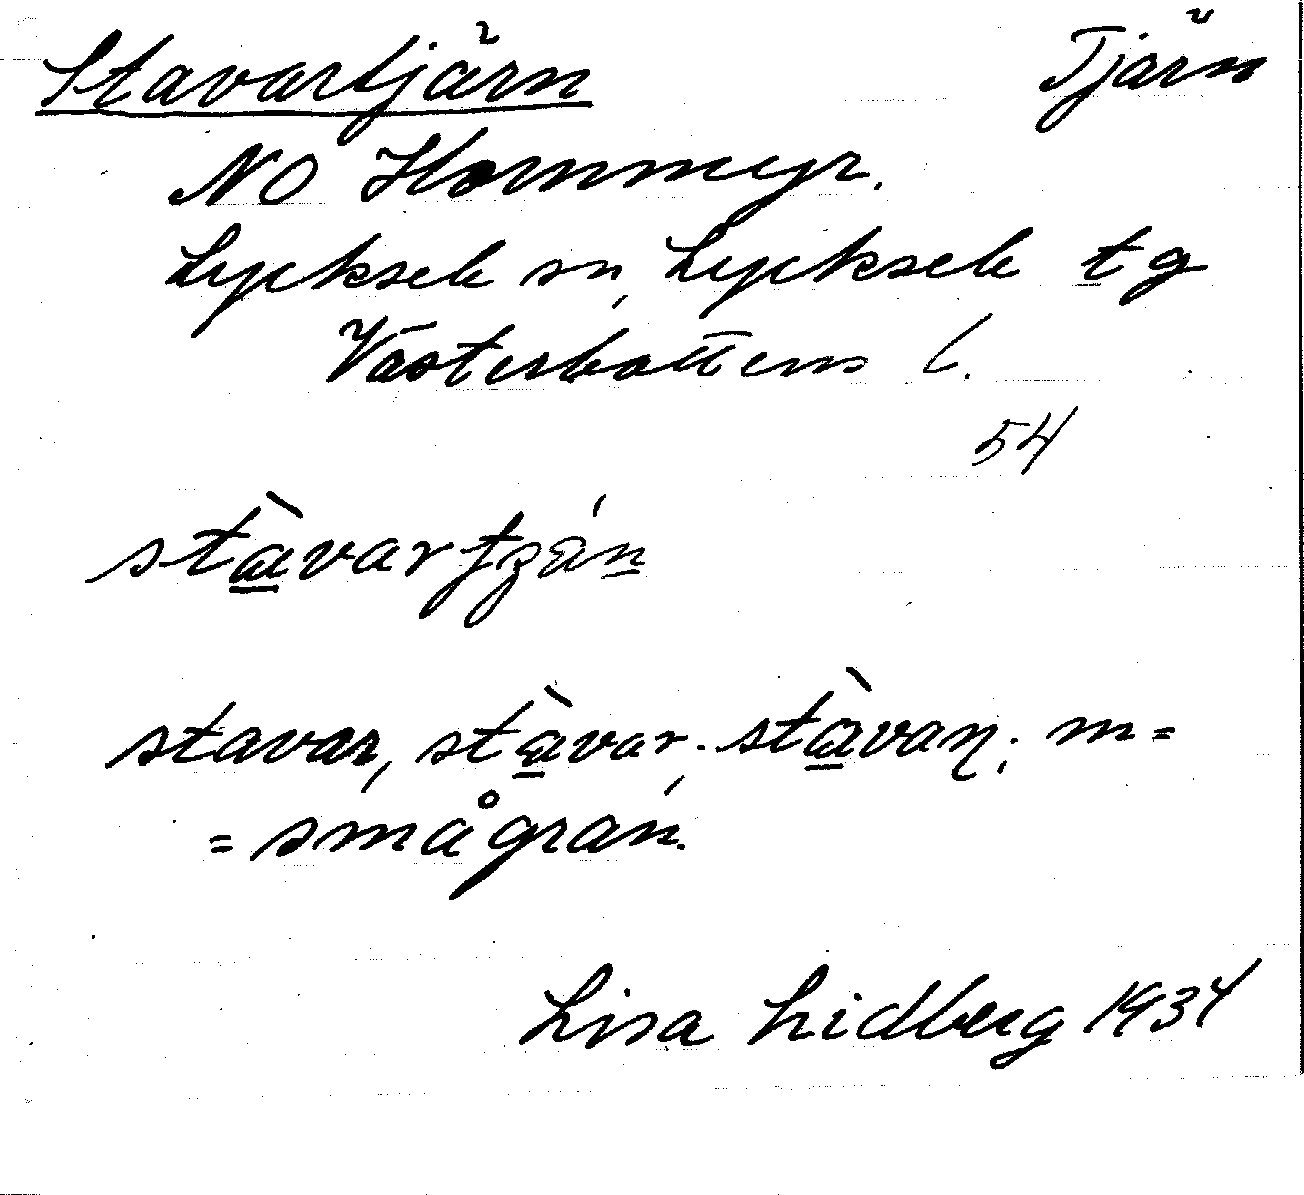 Stavartjärn Tjärn
NO Hornmyr.
Lycksele sn, Lycksele tg
Västerbottens l.
54
stavar, stàvar; stàvaṇ; m=
= smågran.
Lisa Lidberg 1934